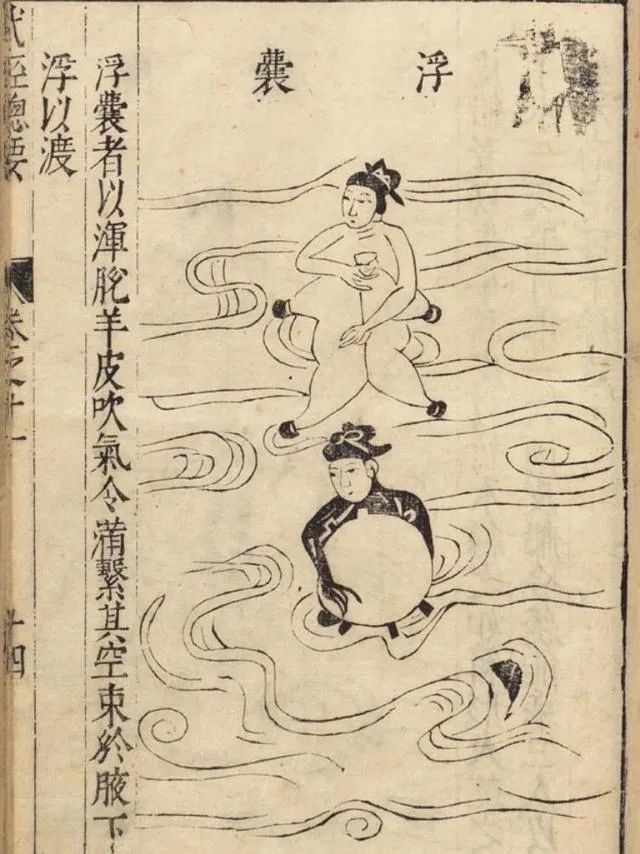 浮囊
浮囊者以渾脫羊皮吹氣令滿繫其空束於腋下
浮以渡
武經總要
卷之十一
十四